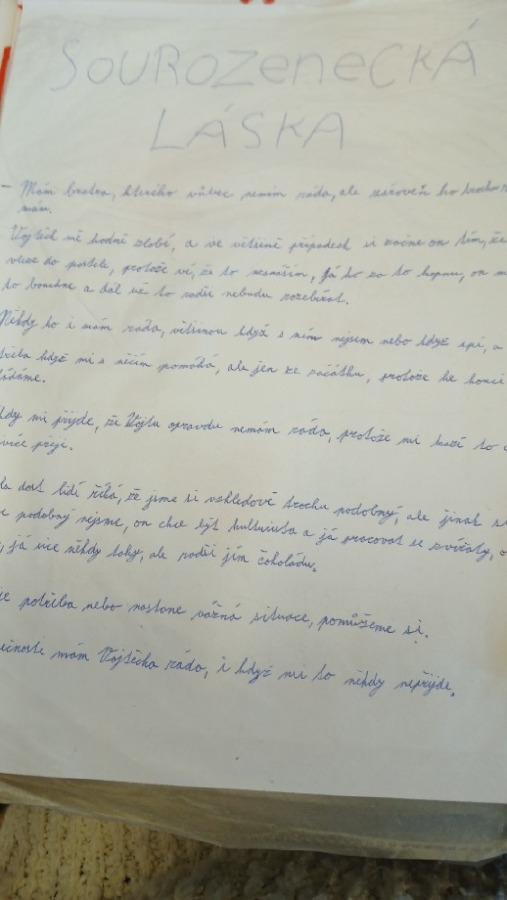 SOUROZENECKÁ
LÁSKA
- Mám bratra, kterého vůbec nemám ráda, ale zároveň ho trochu
mám.
Vojtěch mě hodně zlobí, a ve většině případech si začne on tím, že
vleze do postele, protože ví, že to nesnáším, já ho za to kopnu, on
to bouchne a dál už to radši nebudu rozebírat.
Někdy ho i mám ráda, většinou když s ním nejsem nebo když spí, a
třeba když mi s něčím pomáhá, ale jen ze začátku, protože ke konci
hádáme.
kdy mi přijde, že Vojtu opravdu nemám ráda, protože mi kazí to
více přeji.
la dost lidí říká, že jsme si vzhledově trochu podobný, ale jinak si
podobný nejsme, on chce být kulturista a já pracovat se zvířaty, o
já sice někdy taky, ale radši jím čokoládu.
je potřeba nebo nastane vážná situace, pomůžeme si.
učnosti mám Vojtěcha ráda, i když mi to někdy nepřijde.